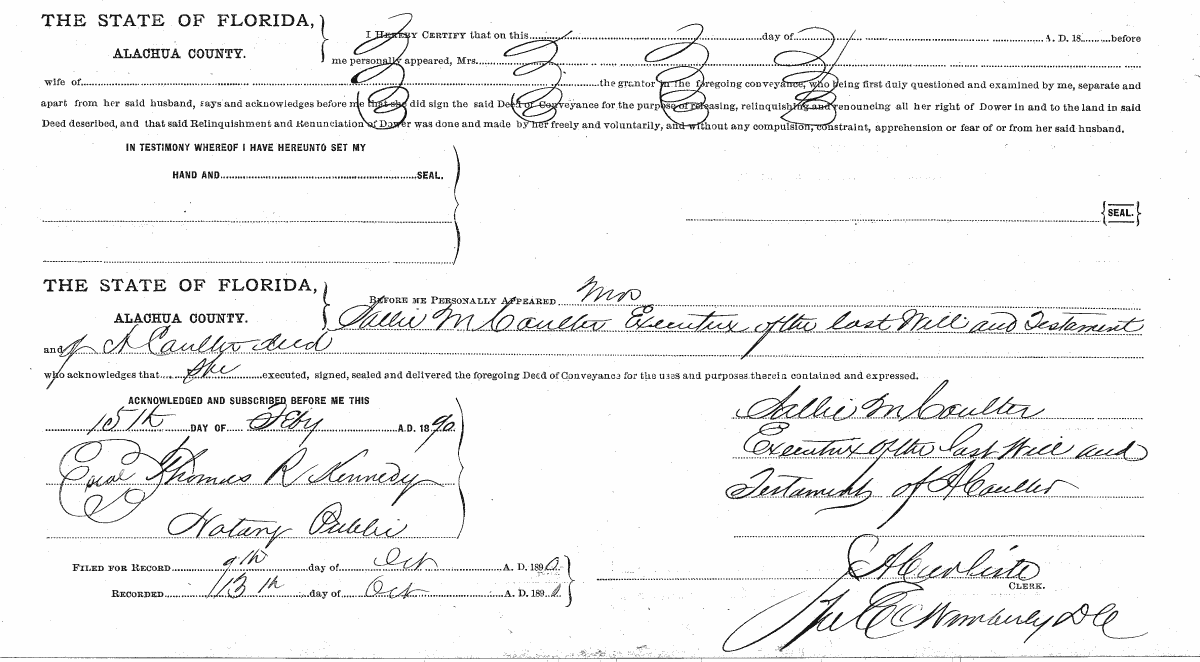 THE STATE OF FLORIDA,
ALACHUA COUNTY.
I HEREBY CERTIFY that on this day of A. D. 18 before
me personally appeared, Mrs.
wife of the grantor in the foregoing conveyance, who being first duly questioned and examined by me, separate and
apart from her said husband, says and acknowledges before me that she did sign the said Deed of Conveyance for the purpose of releasing, relinquishing and renouncing all her right of Dower in and to the land in said
Deed described, and that said Relinquishment and Renunciation of Dower was done and made by her freely and voluntarily, and without any compulsion, constraint, apprehension or fear of or from her said husband.
IN TESTIMONY WHEREOF I HAVE HEREUNTO SET MY
HAND AND SEAL.
SEAL.
THE STATE OF FLORIDA,
ALACHUA COUNTY.
BEFORE ME PERSONALLY APPEARED Mrs
Sallie M Coulter Executrix of the last Will and Testament
and of A Coulter decd
who acknowledges that she executed, signed, sealed and delivered the foregoing Deed of Conveyance for the uses and purposes therein contained and expressed.
ACKNOWLEDGED AND SUBSCRIBED BEFORE ME THIS
15th DAY OF Feby A.D. 1890
Thomas R Kennedy
Notary Public
Sallie M Coulter
Executrix of the last Will and
Testament of A Coulter
FILED FOR RECORD 9th day of Oct A. D. 1890
RECORDED 13th day of Oct A. D. 1890
CLERK.
Wimberly DC